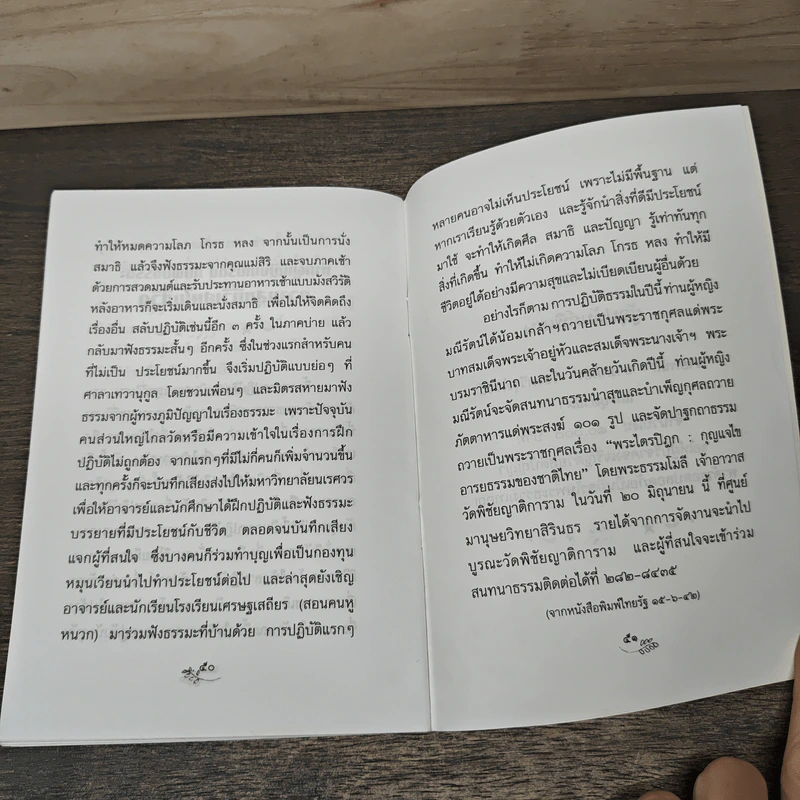 ทำให้หมดความโลภ โกรธ หลง จากนั้นเป็นการนั่ง
สมาธิ แล้วจึงฟังธรรมะจากคุณแม่สิริ และจบภาคเช้า
ด้วยการสวดมนต์และรับประทานอาหารเช้าแบบมังสวิรัติ
หลังอาหารก็จะเริ่มเดินและนั่งสมาธิ เพื่อไม่ให้จิตคิดถึง
เรื่องอื่น สลับปฏิบัติเช่นนี้อีก ๓ ครั้ง ในภาคบ่าย แล้ว
กลับมาฟังธรรมะสั้นๆ อีกครั้ง ซึ่งในช่วงแรกสำหรับคน
ที่ไม่เป็น ประโยชน์มากขึ้น จึงเริ่มปฏิบัติแบบย่อๆ ที่
ศาลาเทวานุกูล โดยชวนเพื่อนๆ และมิตรสหายมาฟัง
ธรรมจากผู้ทรงภูมิปัญญาในเรื่องธรรมะ เพราะปัจจุบัน
คนส่วนใหญ่ไกลวัดหรือมีความเข้าใจในเรื่องการฝึก
ปฏิบัติไม่ถูกต้อง จากแรกๆที่มีไม่กี่คนก็เพิ่มจำนวนขึ้น
และทุกครั้งก็จะบันทึกเสียงส่งไปให้มหาวิทยาลัยนเรศวร
เพื่อให้อาจารย์และนักศึกษาได้ฝึกปฏิบัติและฟังธรรมะ
บรรยายที่มีประโยชน์กับชีวิต ตลอดจนบันทึกเสียง
แจกผู้ที่สนใจ ซึ่งบางคนก็ร่วมทำบุญเพื่อเป็นกองทุน
หมุนเวียนนำไปทำประโยชน์ต่อไป และล่าสุดยังเชิญ
อาจารย์และนักเรียนโรงเรียนเศรษฐเสถียร (สอนคนหู
หนวก) มาร่วมฟังธรรมะที่บ้านด้วย การปฏิบัติแรกๆ
๕๐
หลายคนอาจไม่เห็นประโยชน์ เพราะไม่มีพื้นฐาน แต่
หากเราเรียนรู้ด้วยตัวเอง และรู้จักนำสิ่งที่ดีมีประโยชน์
มาใช้ จะทำให้เกิดศีล สมาธิ และปัญญา รู้เท่าทันทุก
สิ่งที่เกิดขึ้น ทำให้ไม่เกิดความโลภ โกรธ หลง ทำให้มี
ชีวิตอยู่ได้อย่างมีความสุขและไม่เบียดเบียนผู้อื่นด้วย
อย่างไรก็ตาม การปฏิบัติธรรมในปีนี้ ท่านผู้หญิง
มณีรัตน์ได้น้อมเกล้าฯ ถวายเป็นพระราชกุศลแด่พระ
บาทสมเด็จพระเจ้าอยู่หัวและสมเด็จพระนางเจ้าฯ พระ
บรมราชินีนาถ และในวันคล้ายวันเกิดปีนี้ ท่านผู้หญิง
มณีรัตน์จะจัดสนทนาธรรมนำสุขและบำเพ็ญกุศลถวาย
ภัตตาหารแด่พระสงฆ์ ๑๐๑ รูป และจัดปาฐกถาธรรม
ถวายเป็นพระราชกุศลเรื่อง “พระไตรปิฎก : กุญแจไข
อารยธรรมของชาติไทย” โดยพระธรรมโมลี เจ้าอาวาส
วัดพิชัยญาติการาม ในวันที่ ๒๐ มิถุนายน นี้ ที่ศูนย์
มานุษยวิทยาสิรินธร รายได้จากการจัดงานจะนำไป
บูรณะวัดพิชัยญาติการาม และผู้ที่สนใจจะเข้าร่วม
สนทนาธรรมติดต่อได้ที่ ๒๘๒-๘๔๓๕
(จากหนังสือพิมพ์ไทยรัฐ ๑๕-๖-๔๒)
๕๑